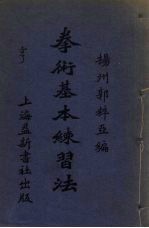 楊州郭粹亞編
拳術基本練習法
上海益新書社出版